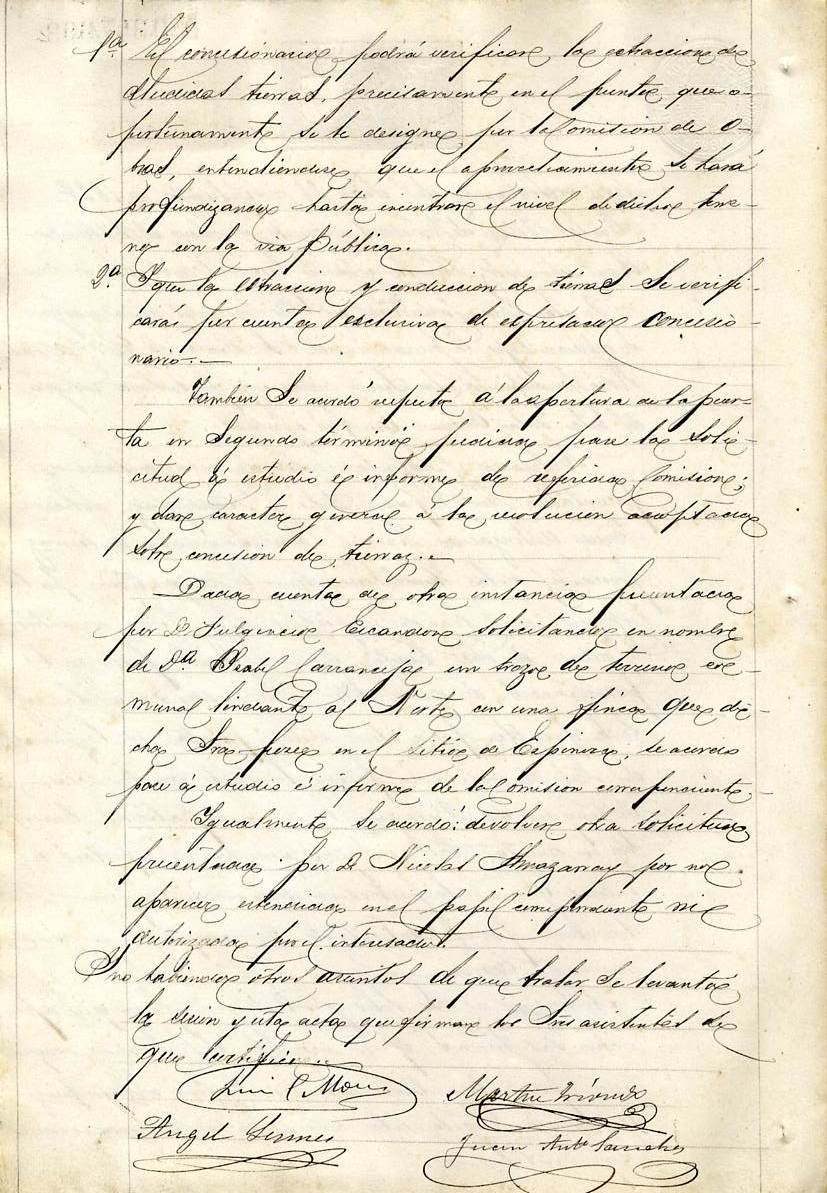 1ª El concesionario podrá verificar la extraccion de
aludidas tierras, precisamente en el punto, que o-
portunamente se le designe por la Comision de O-
bras, entendiendose que el aprovechamiento se hará
profundizando hasta encontrar el nivel de dicho terre-
no con la via pública.
2ª Y que la estraccion y conduccion de tierras se verifi-
cará por cuenta esclusiva de espresado concesio-
nario.—
También se acordó respecto á la apertura de la puer-
ta en segundo término pase la soli-
citud á estudio é informe de referida Comision;
y dar caracter general á la resolucion adoptada
sobre concesion de tierras.—
Dada cuenta de otra instancia presentada
por D. Fulgencio Escandon solicitando en nombre
de Dª Isabel Carranceja un trozo de terreno co-
munal lindante al Norte con una finca que di-
cha Sra posee en el sitio de Espinosa, se acordó
pase á estudio é informe de la Comision correspondiente.
Igualmente se acordó: devolver otra solicitud
presentada por D. Nicolas por no
aparecer estendida en el papel correspondiente ni
autorizada por el interesado.
Y no habiendo otros asuntos de que tratar se levantó
la sesion y esta acta que firman los Sres asistentes de
que certifico.
Martin
Angel
Juan Antº Sanchez